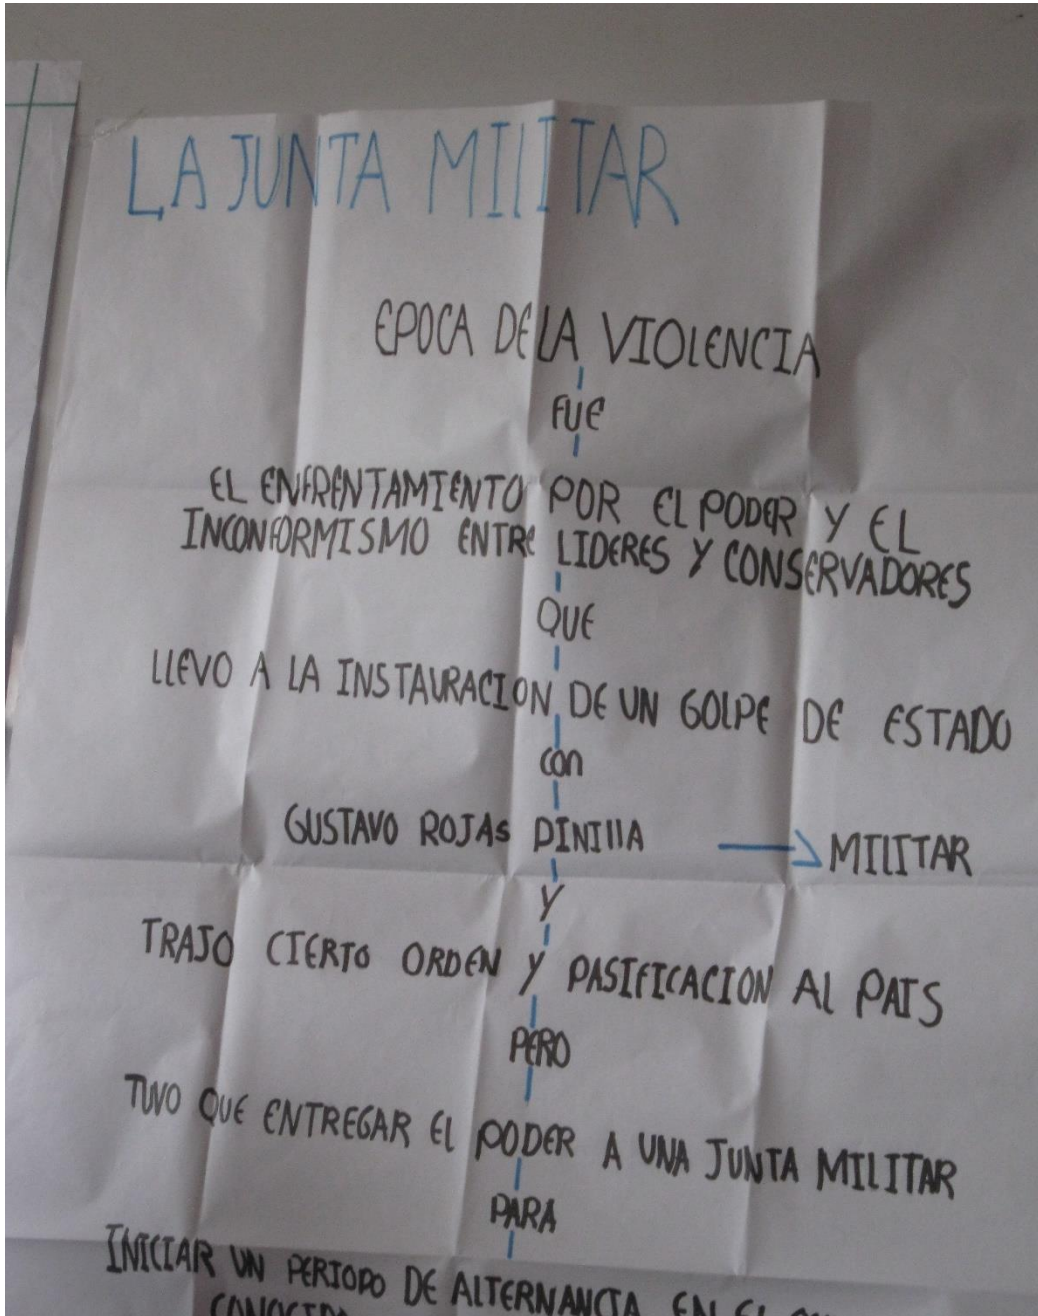 LA JUNTA MILITAR
EPOCA DE LA VIOLENCIA
FUE
EL ENFRENTAMIENTO POR EL PODER Y EL
INCONFORMISMO ENTRE LIDERES Y CONSERVADORES
QUE
LLEVO A LA INSTAURACION DE UN GOLPE DE ESTADO
con
GUSTAVO ROJAS PINILLA → MILITAR
Y
TRAJO CIERTO ORDEN Y PASIFICACION AL PAIS
PERO
TUVO QUE ENTREGAR EL PODER A UNA JUNTA MILITAR
PARA
INICIAR UN PERIODO DE ALTERNANCIA EN EL